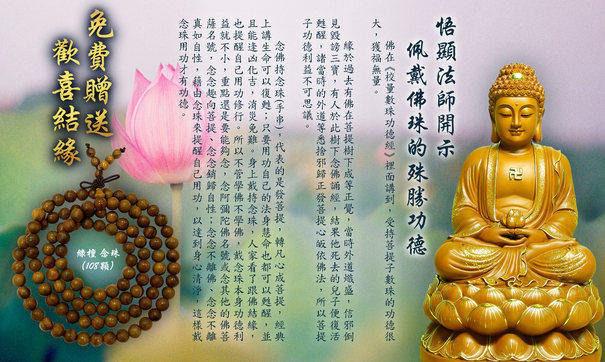 悟顯法師開示
佩戴佛珠的殊勝功德
佛在《校量數珠功德經》裡面講到，受持菩提子數珠的功德很
大，獲福無量。
緣於過去有佛在菩提樹下成等正覺，當時外道熾盛，信邪倒
見毀謗三寶，有人於此樹下念佛誦經，結果他死去的兒子便復活
甦醒，諸當時的外道等悉捨邪歸正發菩提心皈依佛法，所以菩提
子功德利益不可思議。
念佛持念珠（手串），代表的是發菩提，轉凡心成菩提，經典
上講生命可以復甦；只要用功自己的法身慧命也都可以甦醒，並
且能逢凶化吉，消災免難。身上戴持念珠，人家看了跟佛結緣，
也提醒自己用功修行。所以不管學佛不學佛，戴念珠本身功德利
益就不小，重點還是要能夠念，念阿彌陀佛名號或念其他的佛菩
薩名號，念念趣向菩提、念念銷歸自性，念念不離佛，念念不離
真如自性，藉由念珠來提醒自己用功，以達到身心清淨，這樣戴
念珠用功才有功德。
免費贈送
歡喜結緣
綠檀 念珠
（108顆）